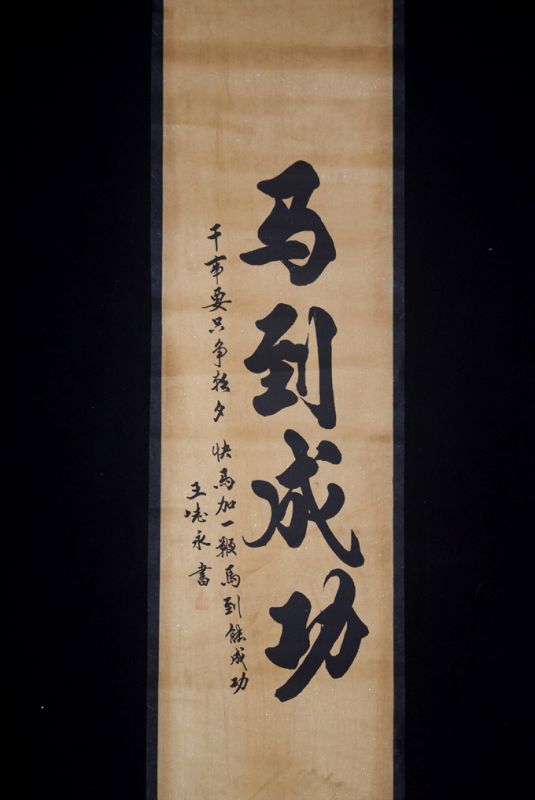 马到成功
干事要只争朝夕 快马加一鞭马到能成功
王志永書